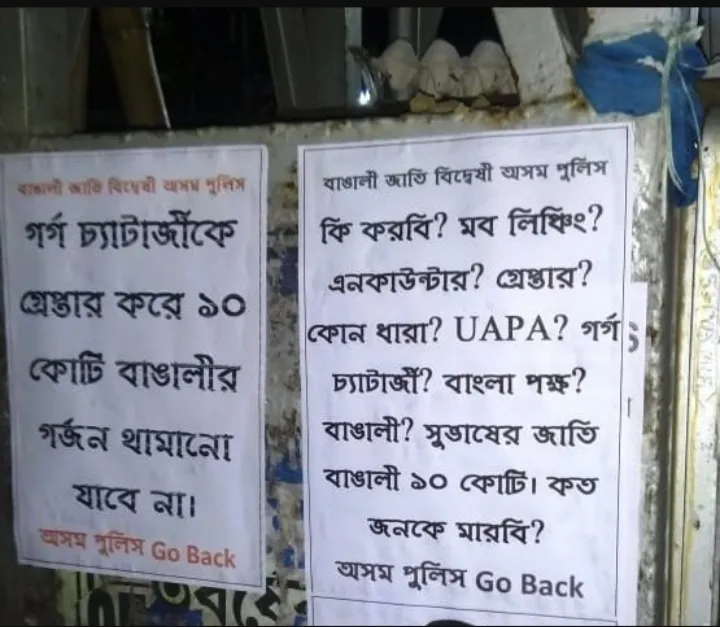 বাঙালী জাতি বিদ্বেষী অসম পুলিস
গর্গ চ্যাটার্জীকে
গ্রেপ্তার করে ১০
কোটি বাঙালীর
গর্জন থামানো
যাবে না।
অসম পুলিস Go Back
বাঙালী জাতি বিদ্বেষী অসম পুলিস
কি করবি? মব লিঞ্চিং?
এনকাউন্টার? গ্রেপ্তার?
কোন ধারা? UAPA? গর্গ
চ্যাটার্জী? বাংলা পক্ষ?
বাঙালী? সুভাষের জাতি
বাঙালী ১০ কোটি। কত
জনকে মারবি?
অসম পুলিস Go Back